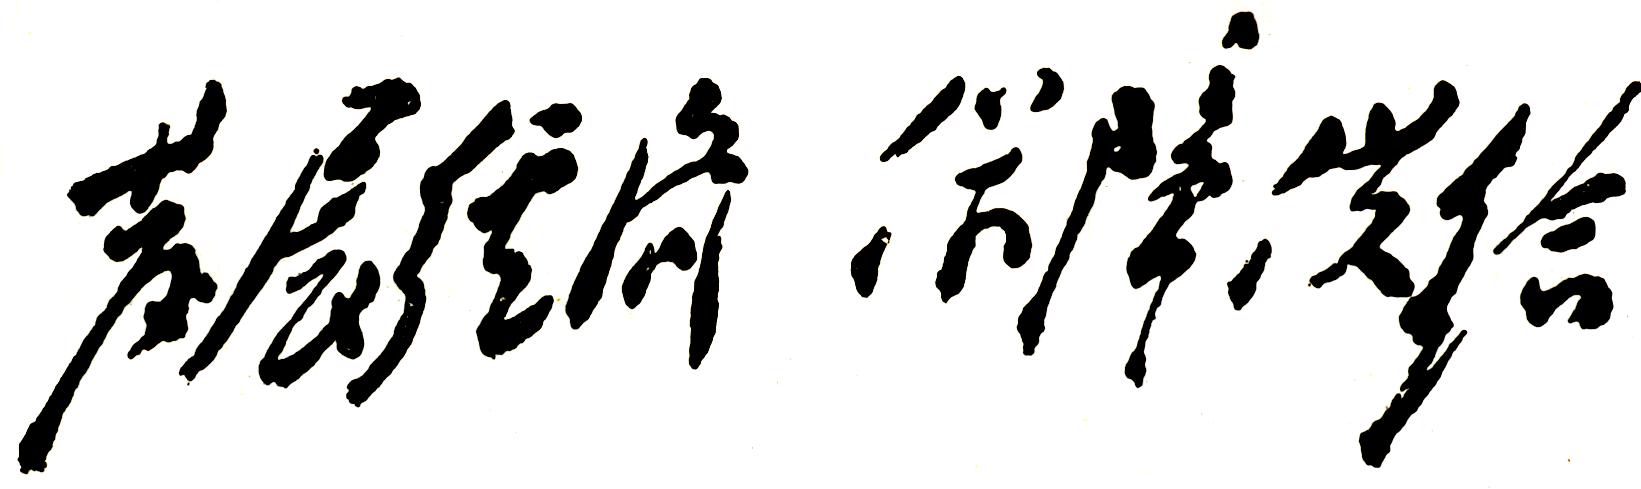 发展经济 保障供给